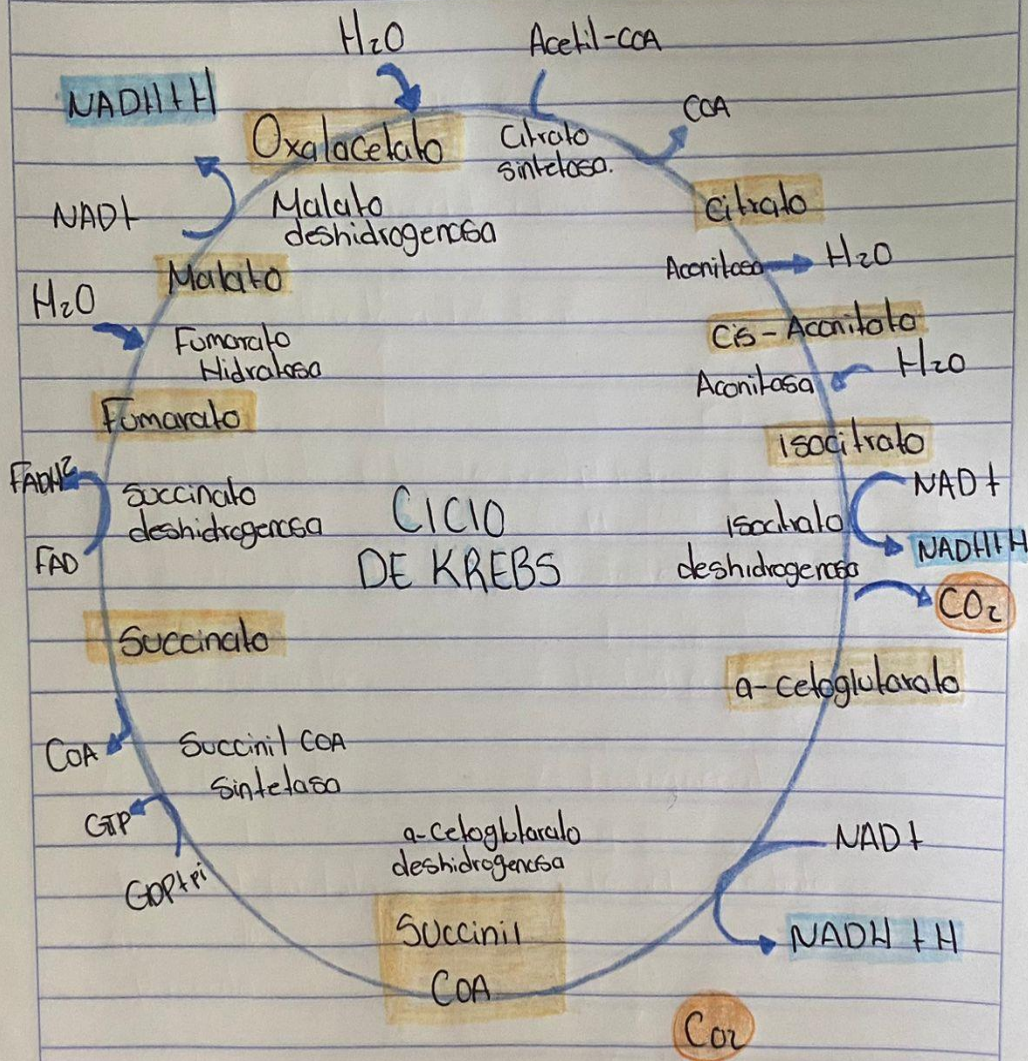 H₂O
Acetil-COA
NADH+H
COA
Oxalacetato
Citrato
sintetasa.
NAD+
Malato
deshidrogenasa
Citrato
Aconitasa
H₂O
Malato
H₂O
Fumarato
Hidratasa
Cis-Aconitato
Aconitasa
H₂O
Fumarato
isocitrato
FADH²
FAD
Succinato
deshidrogenasa
CICIO
DE KREBS
isocitrato
deshidrogenasa
NAD+
NADH+H
CO₂
Succinato
a-cetoglutarato
COA
Succinil COA
sintetasa
GTP
GDP+pi
a-cetoglutarato
deshidrogenasa
NAD+
NADH+H
Succinil
COA
CO₂